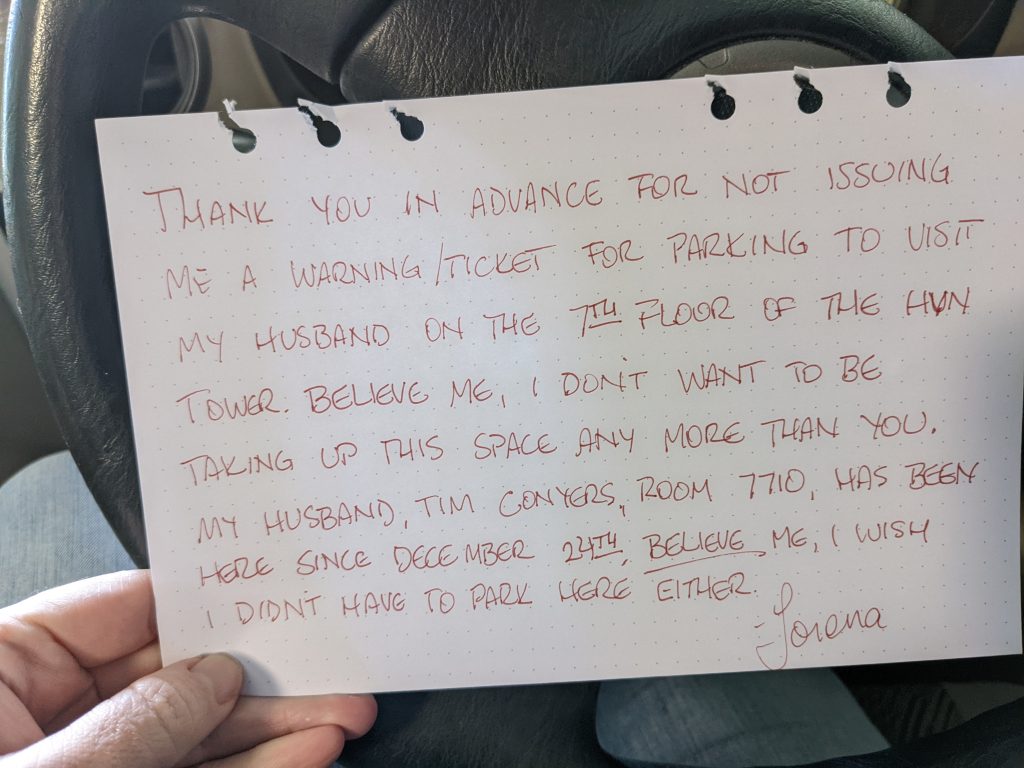 THANK YOU IN ADVANCE FOR NOT ISSUING
ME A WARNING/TICKET FOR PARKING TO VISIT
MY HUSBAND ON THE 7TH FLOOR OF THE HVN
TOWER. BELIEVE ME, I DON'T WANT TO BE
TAKING UP THIS SPACE ANY MORE THAN YOU.
MY HUSBAND, TIM CONYERS, ROOM 7710, HAS BEEN
HERE SINCE DECEMBER 24TH. BELIEVE ME, I WISH
I DIDN'T HAVE TO PARK HERE EITHER.
-Lorena